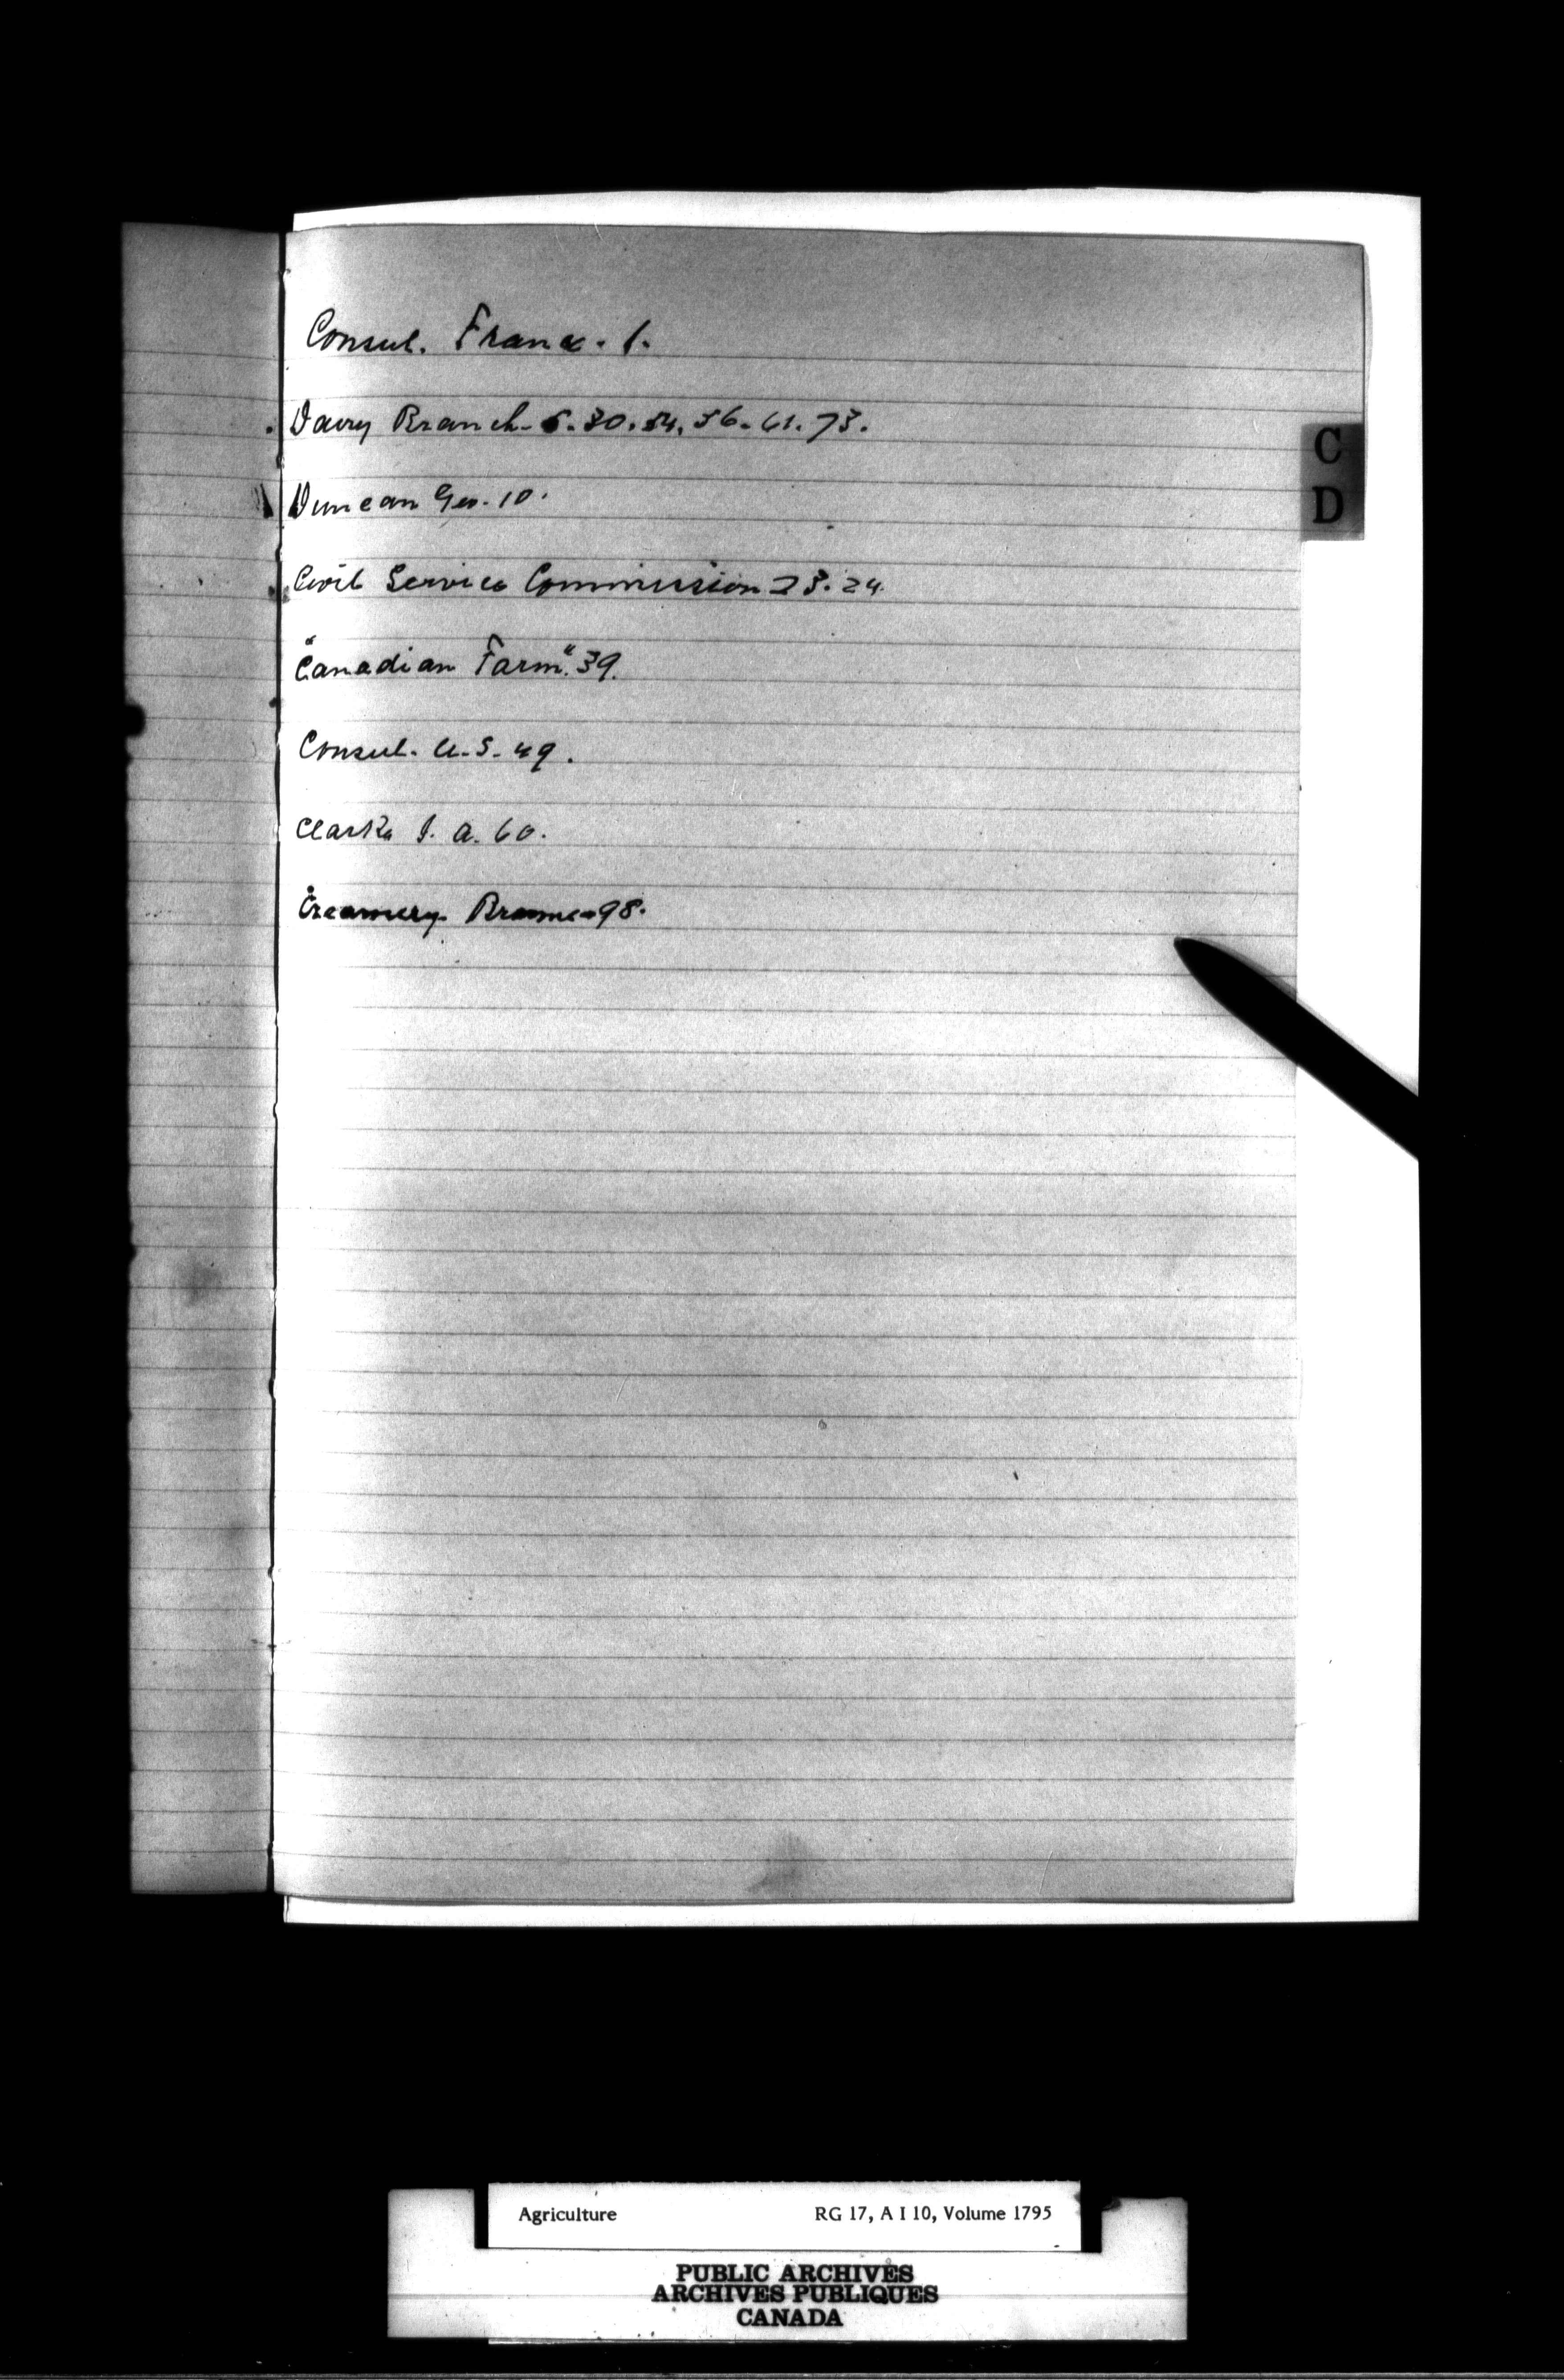 Consul. France. 1.
C
Dairy Branch - 5. 30. 54. 56. 61. 73.
D
Duncan Geo. 10.
Civil Service Commission 23. 24
"Canadian Farm". 39.
Consul. U.S. 49.
Clarke J. A. 60.
Creamery Brome 98.
Agriculture RG 17, A I 10, Volume 1795
PUBLIC ARCHIVES
ARCHIVES PUBLIQUES
CANADA